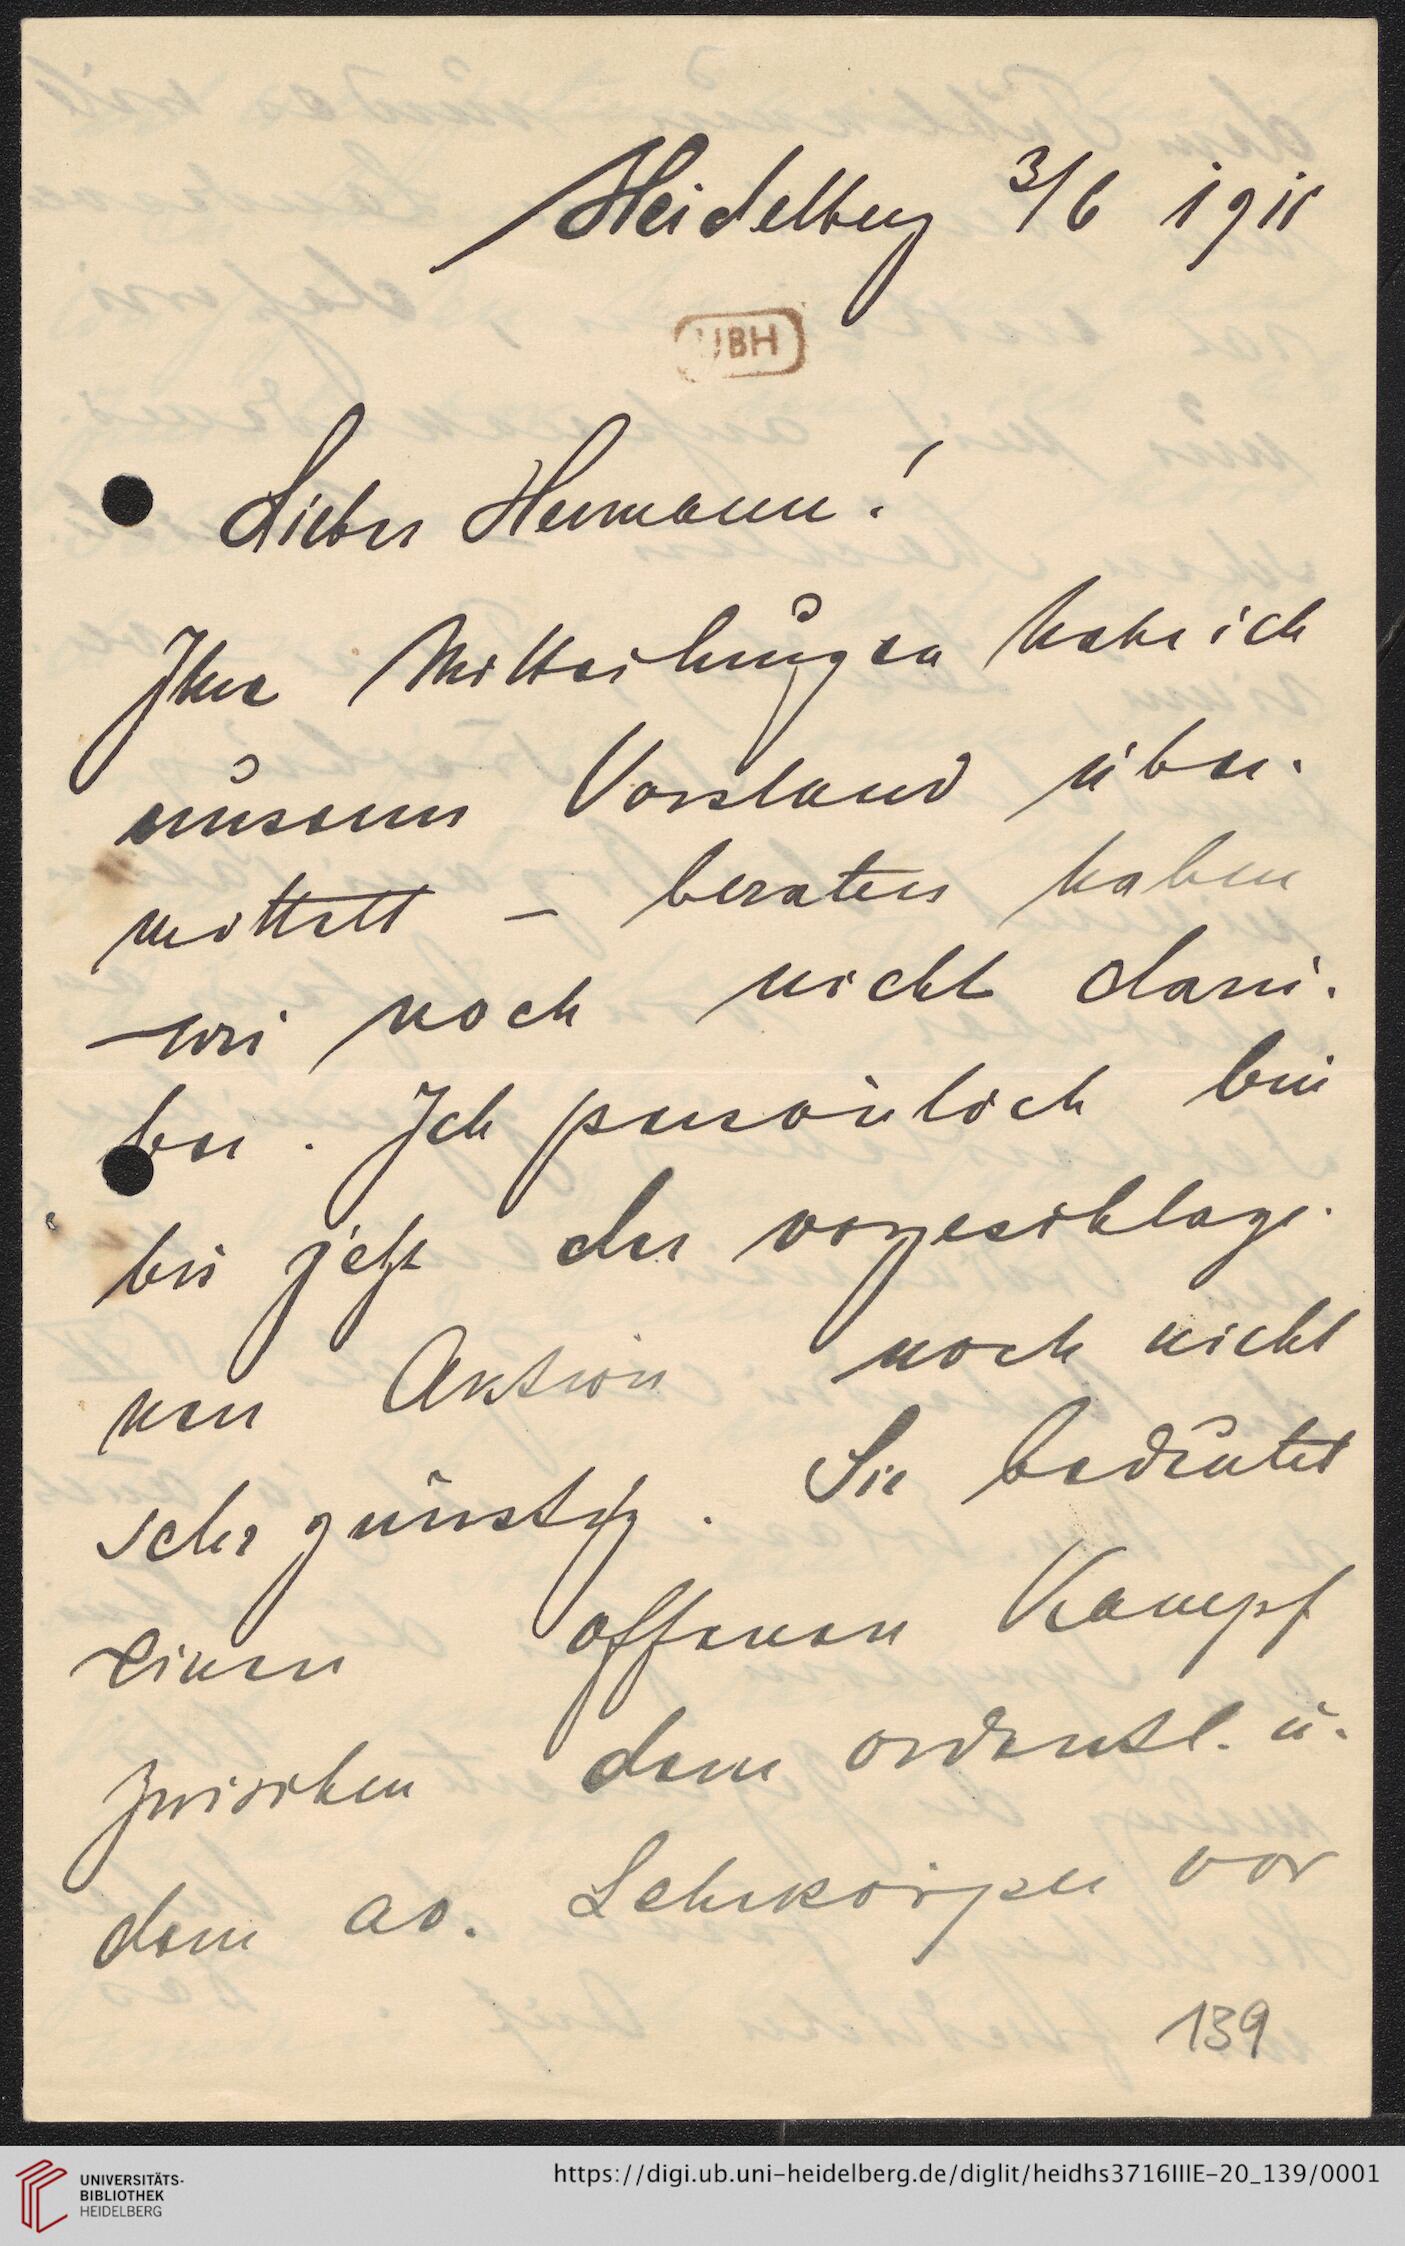 Heidelberg 3/6 1911
UBH
Lieber Hermann!
Ihre Mitteilungen habe ich
unserm Vorstand über-
mittelt – beraten haben
wir noch nicht darü-
ber. Ich persönlich bin
bis jetzt der vorgeschlage-
nen Aktion noch nicht
sehr günstig. Sie bedeutet
einen offenen Kampf
zwischen dem ordentl. u.
dem ao. Lehrkörper vor
139
UNIVERSITÄTS-
BIBLIOTHEK
HEIDELBERG
https://digi.ub.uni-heidelberg.de/diglit/heidhs3716IIIE-20_139/0001